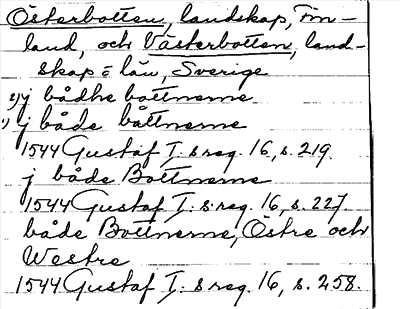 Österbotten, landskap, Fin-
land, och Västerbotten, land-
skap o län, Sverige
2) j bådhe bottnerne
1) j både båttnerne
1544 Gustaf I:s reg. 16, s. 219.
j både Bottnerne
1544 Gustaf I:s reg. 16, s. 227.
både Bottnerne, Östre och
Westre
1544 Gustaf I:s reg. 16, s. 258.